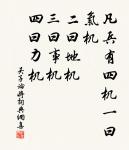 凡兵有四机一曰
氣机
二曰地机
三曰事机
四曰力机